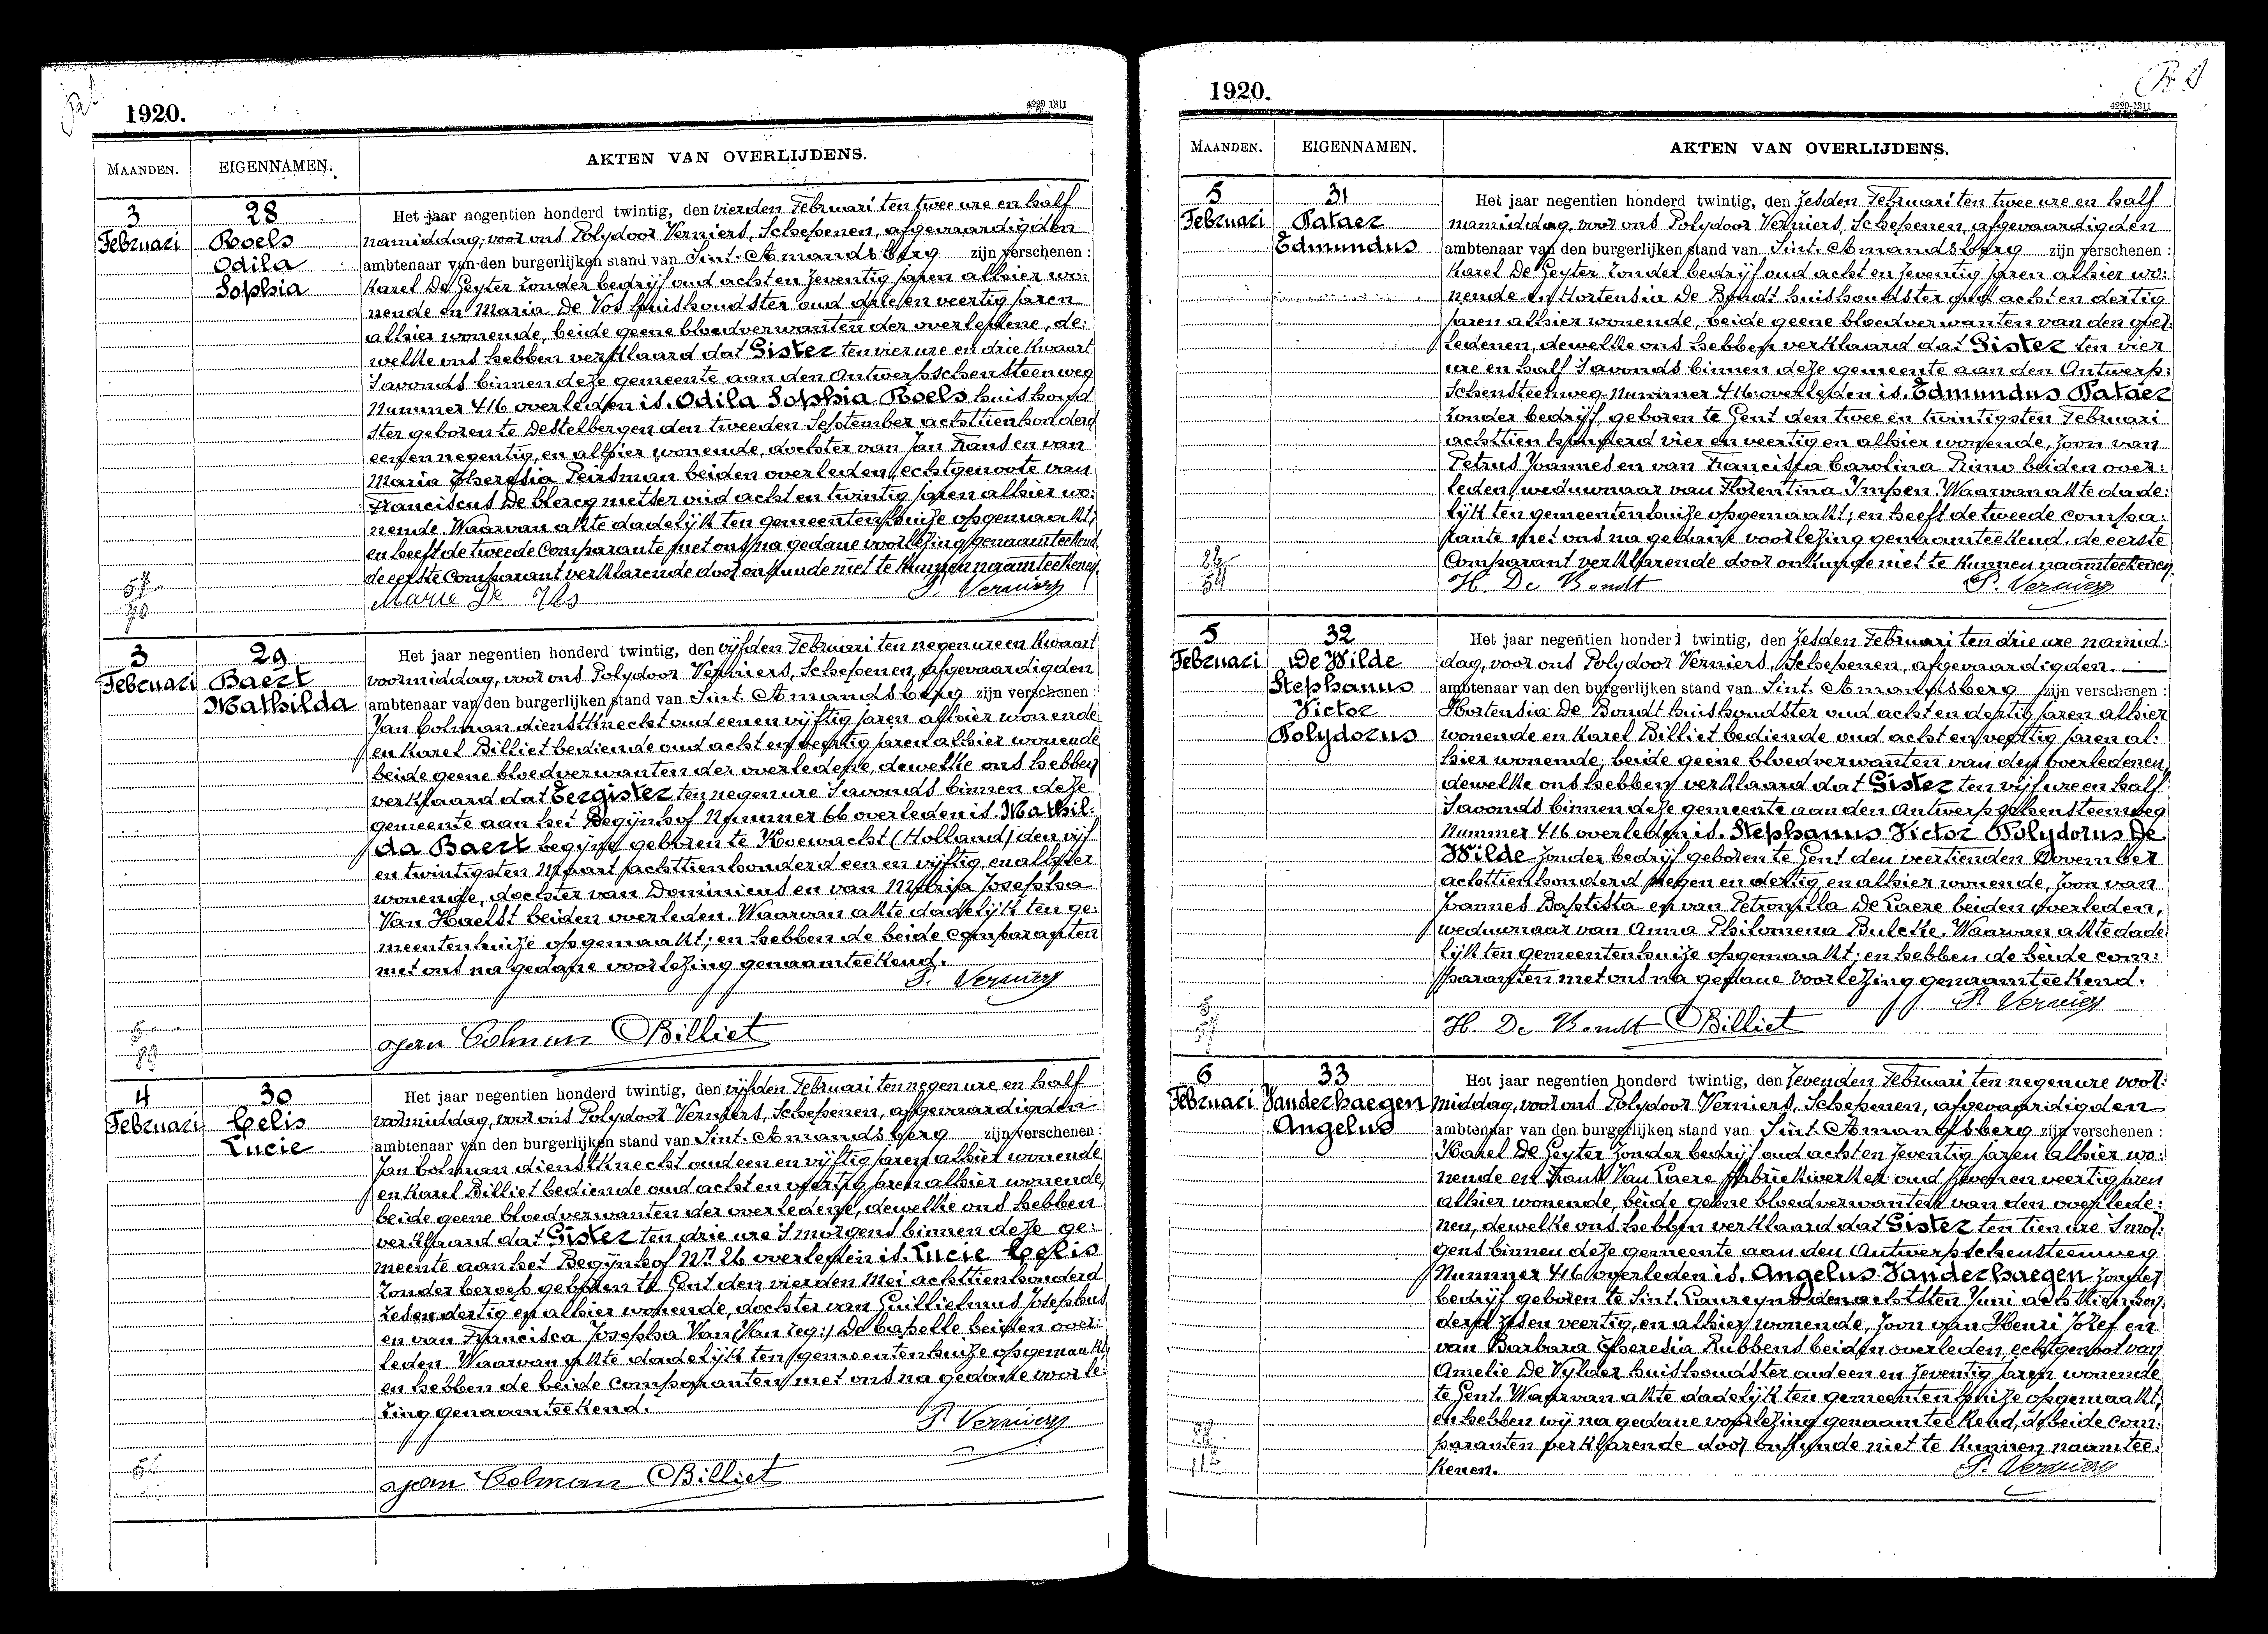 1920.
4229 1311
MAANDEN.
EIGENNAMEN.
AKTEN VAN OVERLIJDENS.
3
Februari
28
Roels
Odila
Sophia
Het jaar negentien honderd twintig, den vierden Februari ten twee ure en half
namiddag, voor ons Polydoor Verniers, Schepenen, afgevaardigden
ambtenaar van den burgerlijken stand van Sint-Amandsberg zijn verschenen:
Karel De Geyter zonder bedrijf oud acht en zeventig jaren alhier wo:
nende en Maria De Vos huishoudster oud drie en veertig jaren
alhier wonende, beide geene bloedverwanten der overledene, de:
welke ons hebben verklaard dat Gister ten vier ure en drie kwaart
'savonds binnen deze gemeente aan den Antwerpschensteenweg
Nummer 416 overleden is. Odila Sophia Roels huishoud
ster geboren te Destelbergen den tweeden September achttienhonderd
een en negentig, en alhier wonende, dochter van Jan Frans en van
Maria Theresia Peirsman beiden overleden, echtgenoote van
Franciscus De Clercq metser oud acht en twintig jaren alhier wo:
nende. Waarvan akte dadelijk ten gemeentenhuize opgemaakt;
en heeft de tweede Comparante met ons na gedane voorlezing genaamteekend,
de eerste Comparant verklarende door onkunde niet te kunnen naamteekenen.
Marie De Vos P. Verniers
3
Februari
29
Baert
Mathilda
Het jaar negentien honderd twintig, den vijfden Februari ten negen ure en kwaart
voormiddag, voor ons Polydoor Verniers, Schepenen, afgevaardigden
ambtenaar van den burgerlijken stand van Sint-Amandsberg zijn verschenen:
Jan Colman dienstknecht oud een en vijftig jaren alhier wonende
en Karel Billiet bediende oud acht en veertig jaren alhier wonende
beide geene bloedverwanten der overledene, dewelke ons hebben
verklaard dat Eergister ten negen ure 'savonds binnen deze
gemeente aan het Begijnhof Nummer 66 overleden is. Mathil:
da Baert begijne geboren te Koewacht (Holland) den vijf
en twintigsten Maart achttienhonderd een en vijftig, en alhier
wonende, dochter van Dominicus en van Maria Josepha
Van Haelst beiden overleden. Waarvan akte dadelijk ten ge:
meentenhuize opgemaakt; en hebben de beide comparanten
met ons na gedane voorlezing genaamteekend.
P. Verniers
Jan Colman Billiet
4
Februari
30
Celis
Lucie
Het jaar negentien honderd twintig, den vijfden Februari ten negen ure en half
voormiddag, voor ons Polydoor Verniers, Schepenen, afgevaardigden
ambtenaar van den burgerlijken stand van Sint-Amandsberg zijn verschenen:
Jan Colman dienstknecht oud een en vijftig jaren alhier wonende
en Karel Billiet bediende oud acht en veertig jaren alhier wonende,
beide geene bloedverwanten der overledene, dewelke ons hebben
verklaard dat Gister ten drie ure 'smorgens binnen deze ge:
meente aan het Begijnhof Nr 26 overleden is. Lucie Celis
zonder beroep geboren te Gent den vierden Mei achttienhonderd
zes en dertig en alhier wonende, dochter van Guillielmus Josephus
en van Francisca Josepha Van (Van zeg:) De Capelle beiden over:
leden. Waarvan akte dadelijk ten gemeentenhuize opgemaakt;
en hebben de beide comparanten met ons na gedane voorle:
zing genaamteekend.
P. Verniers
Jan Colman Billiet
1920.
4229-1311
MAANDEN.
EIGENNAMEN.
AKTEN VAN OVERLIJDENS.
5
Februari
31
Pataer
Edmundus
Het jaar negentien honderd twintig, den zesden Februari ten twee ure en half
namiddag, voor ons Polydoor Verniers, Schepenen, afgevaardigden
ambtenaar van den burgerlijken stand van Sint-Amandsberg zijn verschenen:
Karel De Geyter zonder bedrijf oud acht en zeventig jaren alhier wo:
nende en Hortensia De Bondt huishoudster oud acht en dertig
jaren alhier wonende, beide geene bloedverwanten van den over:
ledenen, dewelke ons hebben verklaard dat Gister ten vier
ure en half 'savonds binnen deze gemeente aan den Antwerp:
schensteenweg Nummer 416 overleden is. Edmundus Pataer
zonder bedrijf, geboren te Gent den twee en twintigsten Februari
achttien honderd vier en veertig en alhier wonende, zoon van
Petrus Joannes en van Francisca Carolina Rimo beiden over:
leden, weduwnaar van Florentina Impen. Waarvan akte dade:
lijk ten gemeentenhuize opgemaakt; en heeft de tweede compa:
rante met ons na gedane voorlezing genaamteekend, de eerste
Comparant verklarende door onkunde niet te kunnen naamteekenen
H. De Bondt P. Verniers
5
Februari
32
De Wilde
Stephanus
Victor
Polydorus
Het jaar negentien honderd twintig, den zesden Februari ten drie ure namid:
dag, voor ons Polydoor Verniers, Schepenen, afgevaardigden.
ambtenaar van den burgerlijken stand van Sint-Amandsberg zijn verschenen:
Hortensia De Bondt huishoudster oud acht en dertig jaren alhier
wonende en Karel Billiet bediende oud acht en veertig jaren al:
hier wonende; beide geene bloedverwanten van den overledenen,
dewelke ons hebben verklaard dat Gister ten vijf ure en half
'savonds binnen deze gemeente aan den Antwerpschensteenweg
Nummer 416 overleden is. Stephanus Victor Polydorus De
Wilde zonder bedrijf geboren te Gent den veertienden November
achttienhonderd negen en dertig en alhier wonende, zoon van
Joannes Baptista en van Petronilla De Caere beiden overleden,
weduwnaar van Anna Philomena Bulcke. Waarvan akte dade
lijk ten gemeentenhuize opgemaakt; en hebben de beide com:
paranten met ons na gedane voorlezing genaamteekend.
P. Verniers
H. De Bondt Billiet
6
Februari
33
Vanderhaegen
Angelus
Het jaar negentien honderd twintig, den zevenden Februari ten negen ure voor:
middag, voor ons Polydoor Verniers, Schepenen, afgevaardigden
ambtenaar van den burgerlijken stand van Sint-Amandsberg zijn verschenen:
Karel De Geyter zonder bedrijf oud acht en zeventig jaren alhier wo:
nende en Frans Van Laere fabriekwerker oud zeven en veertig jaren
alhier wonende, beide geene bloedverwanten van den overlede:
nen, dewelke ons hebben verklaard dat Gister ten tien ure 'smor:
gens binnen deze gemeente aan den Antwerpschensteenweg
Nummer 416 overleden is. Angelus Vanderhaegen zonder
bedrijf geboren te Sint-Laureyns den achtsten Juni achttienhon:
derd zes en veertig, en alhier wonende, zoon van Henri Jozef en
van Barbara Theresia Rubbens beiden overleden, echtgenoot van
Amelie De Vylder huishoudster oud een en zeventig jaren wonende
te Gent. Waarvan akte dadelijk ten gemeentenhuize opgemaakt;
en hebben wij na gedane voorlezing genaamteekend, de beide com:
paranten verklarende door onkunde niet te kunnen naamtee:
kenen. P. Verniers